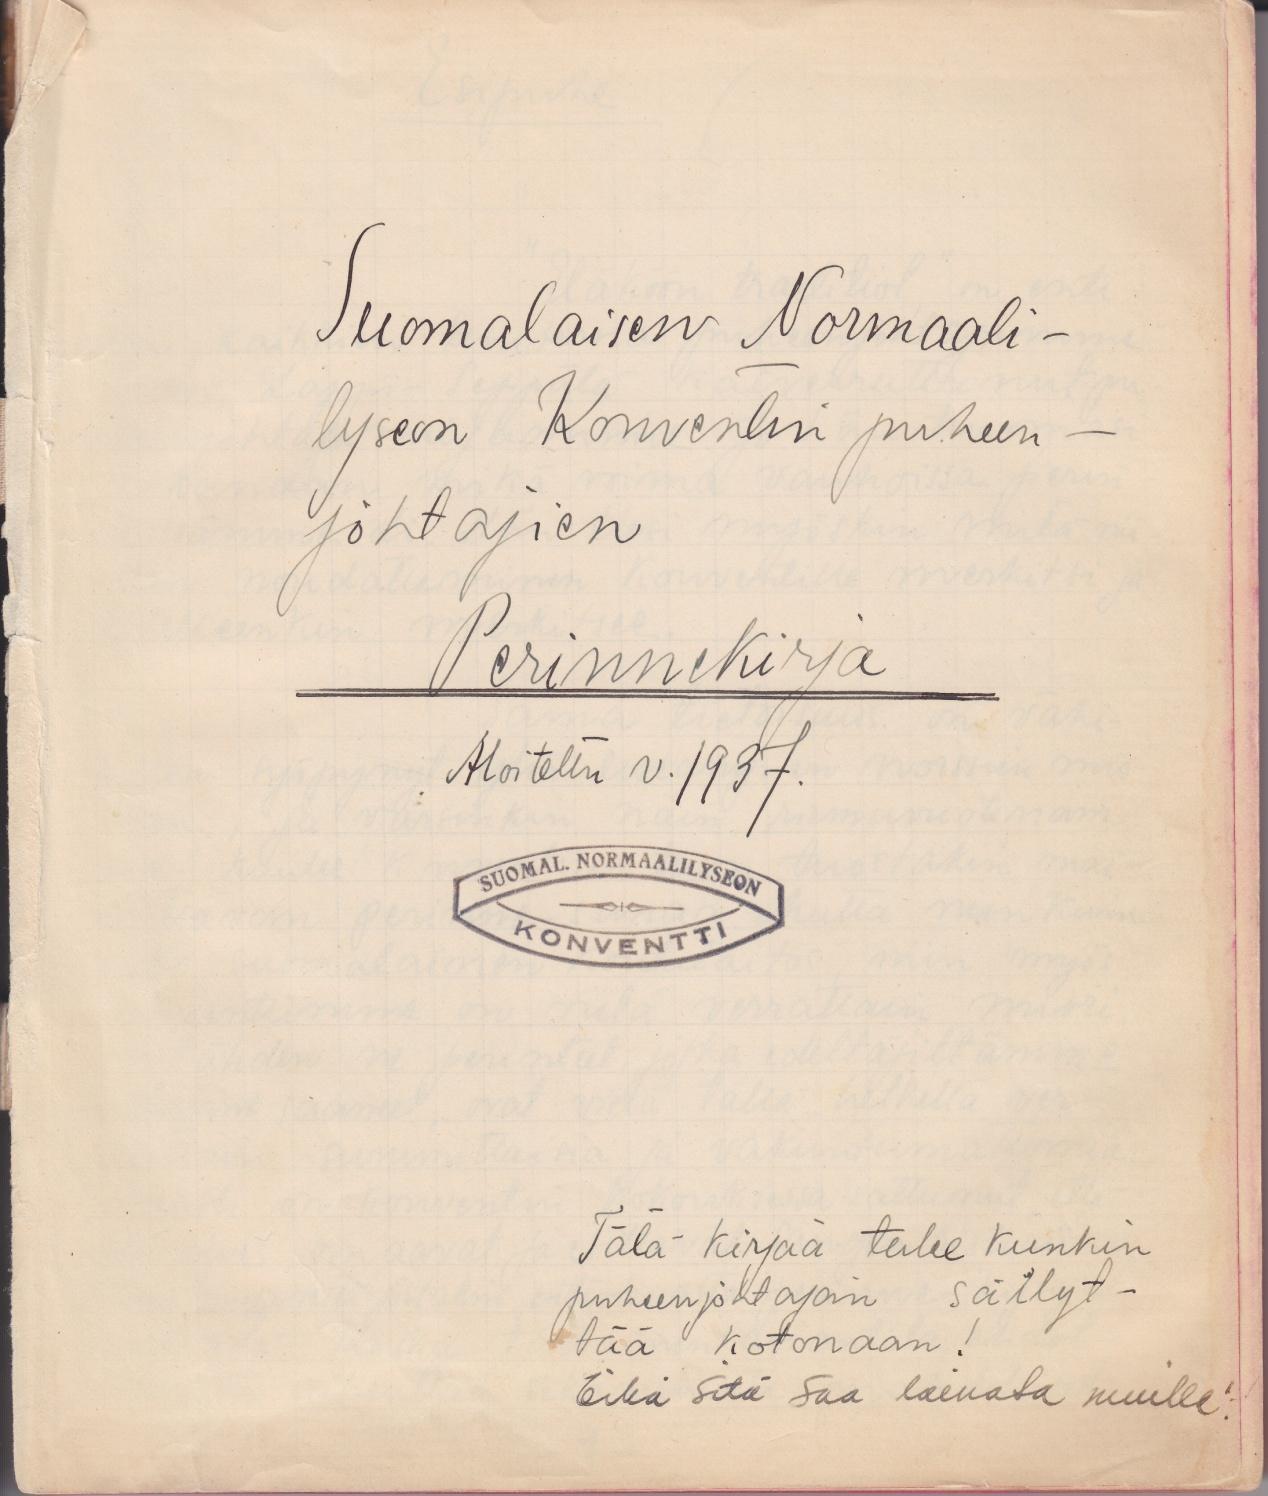 Suomalaisen Normaali-
lyseon Konventin puheen-
johtajien
Perinnekirja
Aloitettu v. 1937.
SUOMAL. NORMAALILYSEON
KONVENTTI
Tätä kirjaa tulee kunkin
puheenjohtajan säilyt-
tää kotonaan!
Eikä sitä saa lainata muille!